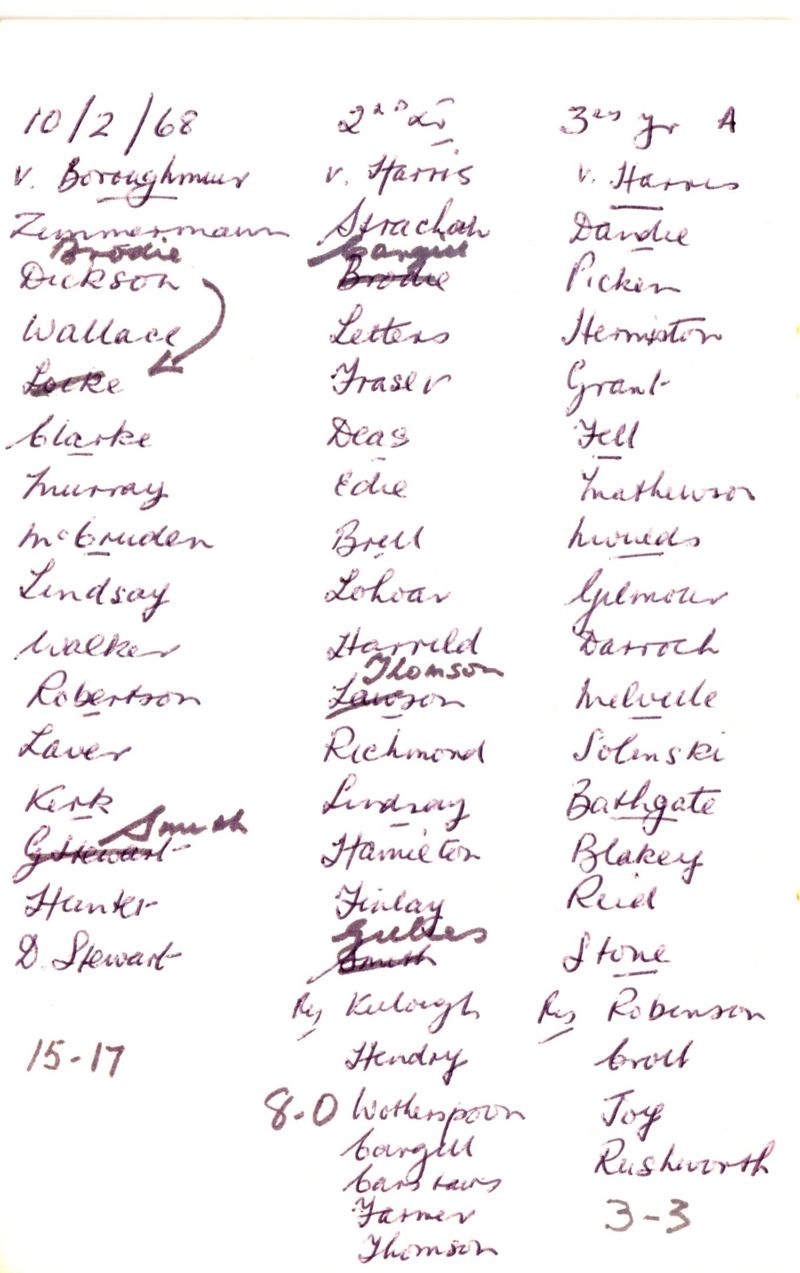 10/2/68
v. Boroughmuir
Zimmermann
Brodie
Dickson
Wallace
Locke
Clarke
Murray
McCruden
Lindsay
Walker
Robertson
Laver
Kirk
Smith
G Stewart
Hunter
D. Stewart
15-17
2nd XV
v. Harris
Strachan
Cargill
Brodie
Letters
Fraser
Deas
Edie
Brell
Lohoar
Harrild
Thomson
Lawson
Richmond
Lindsay
Hamilton
Finlay
Gillies
Smith
Res Kulaigh
Hendry
8-0 Wotherspoon
Cargill
Carstairs
Farmer
Thomson
3rd yr A
v. Harris
Dandie
Picken
Hermiston
Grant
Fell
Mathewson
Gilmour
Darroch
Melville
Solinski
Bathgate
Blakey
Reid
Stone
Res Robinson
Croll
Joy
Rushworth
3-3